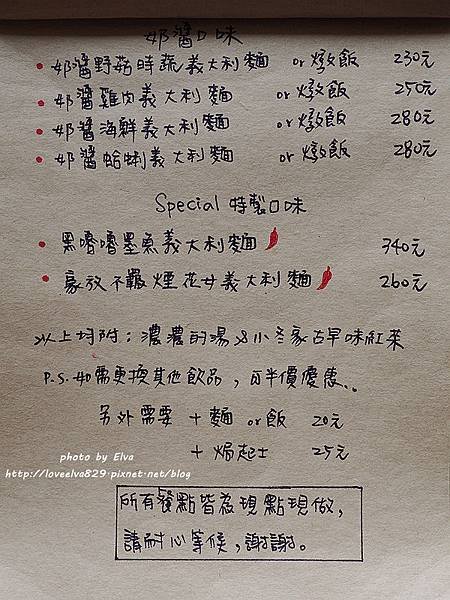 奶醬口味
奶醬野菇時蔬義大利麵 or 燉飯 230元
奶醬雞肉義大利麵 or 燉飯 250元
奶醬海鮮義大利麵 or 燉飯 280元
奶醬蛤蜊義大利麵 or 燉飯 280元
Special 特製口味
黑嚕嚕墨魚義大利麵 340元
豪放不羈煙花女義大利麵 260元
以上均附：濃濃的湯 & 小冬家古早味紅茶
P.S. 如需更換其他飲品，可半價優惠..
另外需要 + 麵 or 飯 20元
+ 焗起士 25元
photo by Elva
http://loveelva829.pixnet.net/blog
所有餐點皆為現點現做，
請耐心等候，謝謝。